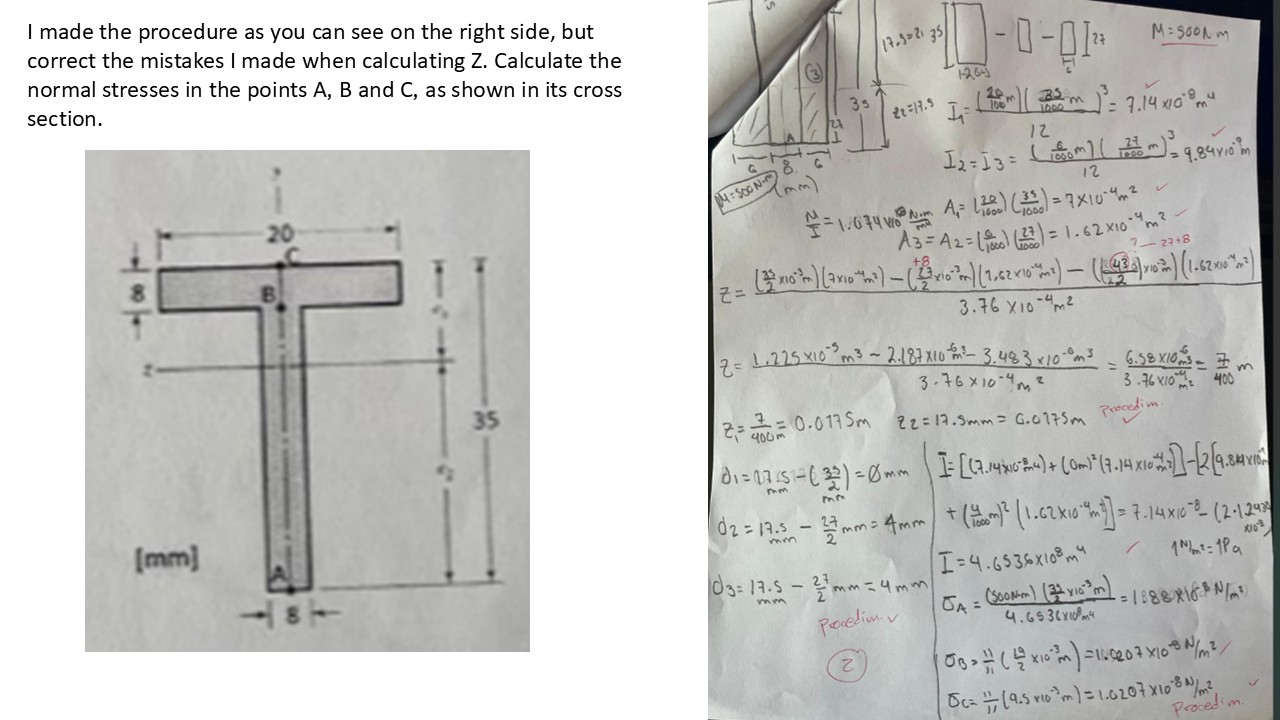 I made the procedure as you can see on the right side, but
correct the mistakes I made when calculating Z. Calculate the
normal stresses in the points A, B and C, as shown in its cross
section.
20
C
8
B
z
35
[mm]
A
8
17.5=z1 35
- - 27
6
M=500N·m
(3)
35
z2=17.5
27
A
6 8 6
(mm)
M=500N·m
I₁= (20/1000 m)(35/1000 m)³/12 = 7.14x10⁻⁸m⁴
I₂=I₃= (6/1000 m)(27/1000 m)³/12 = 9.84x10⁻⁹m
A₁=(20/1000)(35/1000)=7x10⁻⁴m²
A₃=A₂=(6/1000)(27/1000)=1.62x10⁻⁴m²
? — 27+8
+8
Z= (35/2 x10⁻³m)(7x10⁻⁴m²)-(27/2 x10⁻³m)(1.62x10⁻⁴m²)-( x10⁻³m)(1.62x10⁻⁴m²)/3.76x10⁻⁴m²
Z= 1.225x10⁻⁵m³-2.187x10⁻⁶m³-3.483x10⁻⁶m³/3.76x10⁻⁴m² = 6.58x10⁻⁶m³/3.76x10⁻⁴m² = 7/400 m
Procedim.
Z₁= 7/400m = 0.0175m z2=17.5mm=0.0175m
d₁=17.5mm-(35/2 mm)=Ømm
d₂=17.5mm-27/2 mm=4mm
d₃=17.5mm-27/2 mm=4mm
Procedim.
2
I=[(7.14x10⁻⁸m⁴)+(0m)²(7.14x10⁻⁴m²)]-[2[9.84x10
+(4/1000 m)²(1.62x10⁻⁴m²)]=7.14x10⁻⁸-(2.1243
x10⁻⁸
I=4.6536x10⁸m⁴ 1N/m²=1Pa
σA= (500N·m)(35/2 x10⁻³m)/4.6536x10⁸m⁴ =1.88x10⁸N/m²
σB= 11/11 (19/2 x10⁻³m)=1.0207x10⁻⁸N/m²
σC= 11/11 (9.5x10⁻³m)=1.0207x10⁻⁸N/m²
Procedim.